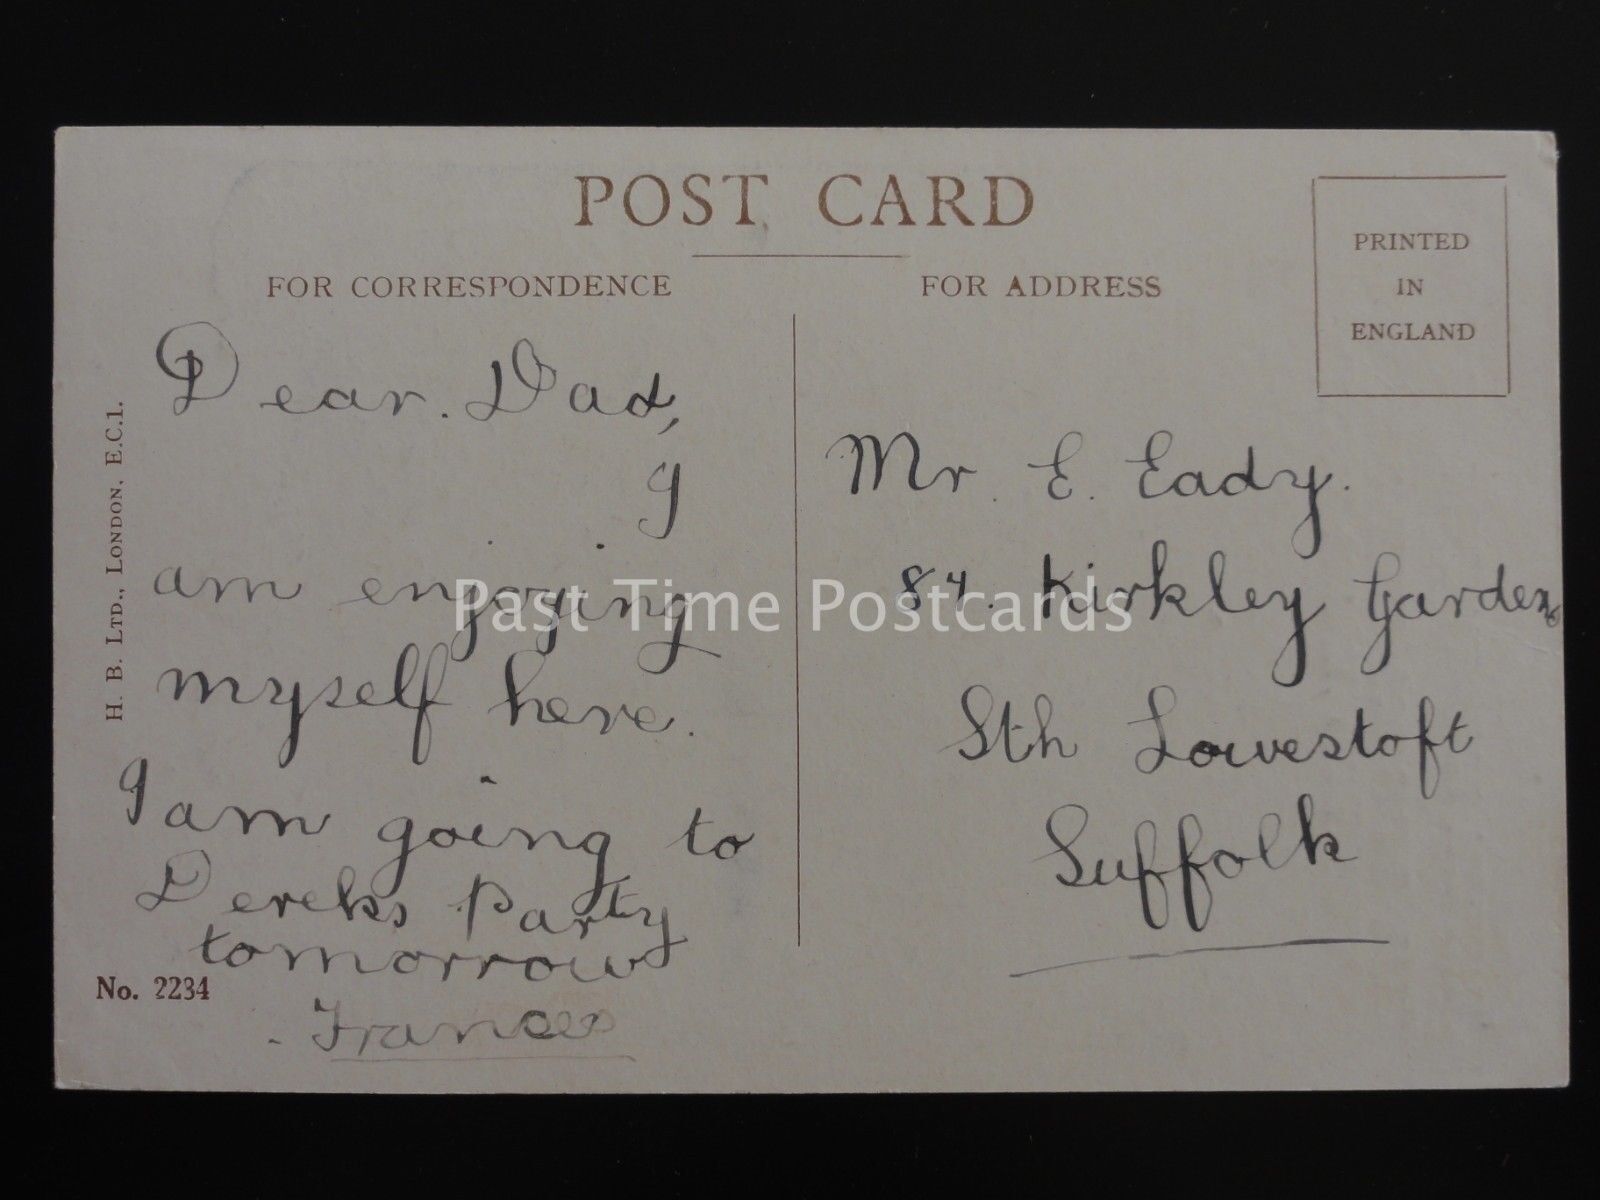 POST CARD
FOR CORRESPONDENCE
FOR ADDRESS
PRINTED
IN
ENGLAND
H. B. LTD., LONDON, E.C.1.
Dear. Dad,
I
am enjoying
myself here.
I am going to
Dereks Party
tomorrow
. Frances
No. 2234
Mr. E. Eady.
84. Kirkley Gardens
Sth Lowestoft
Suffolk
Past Time Postcards